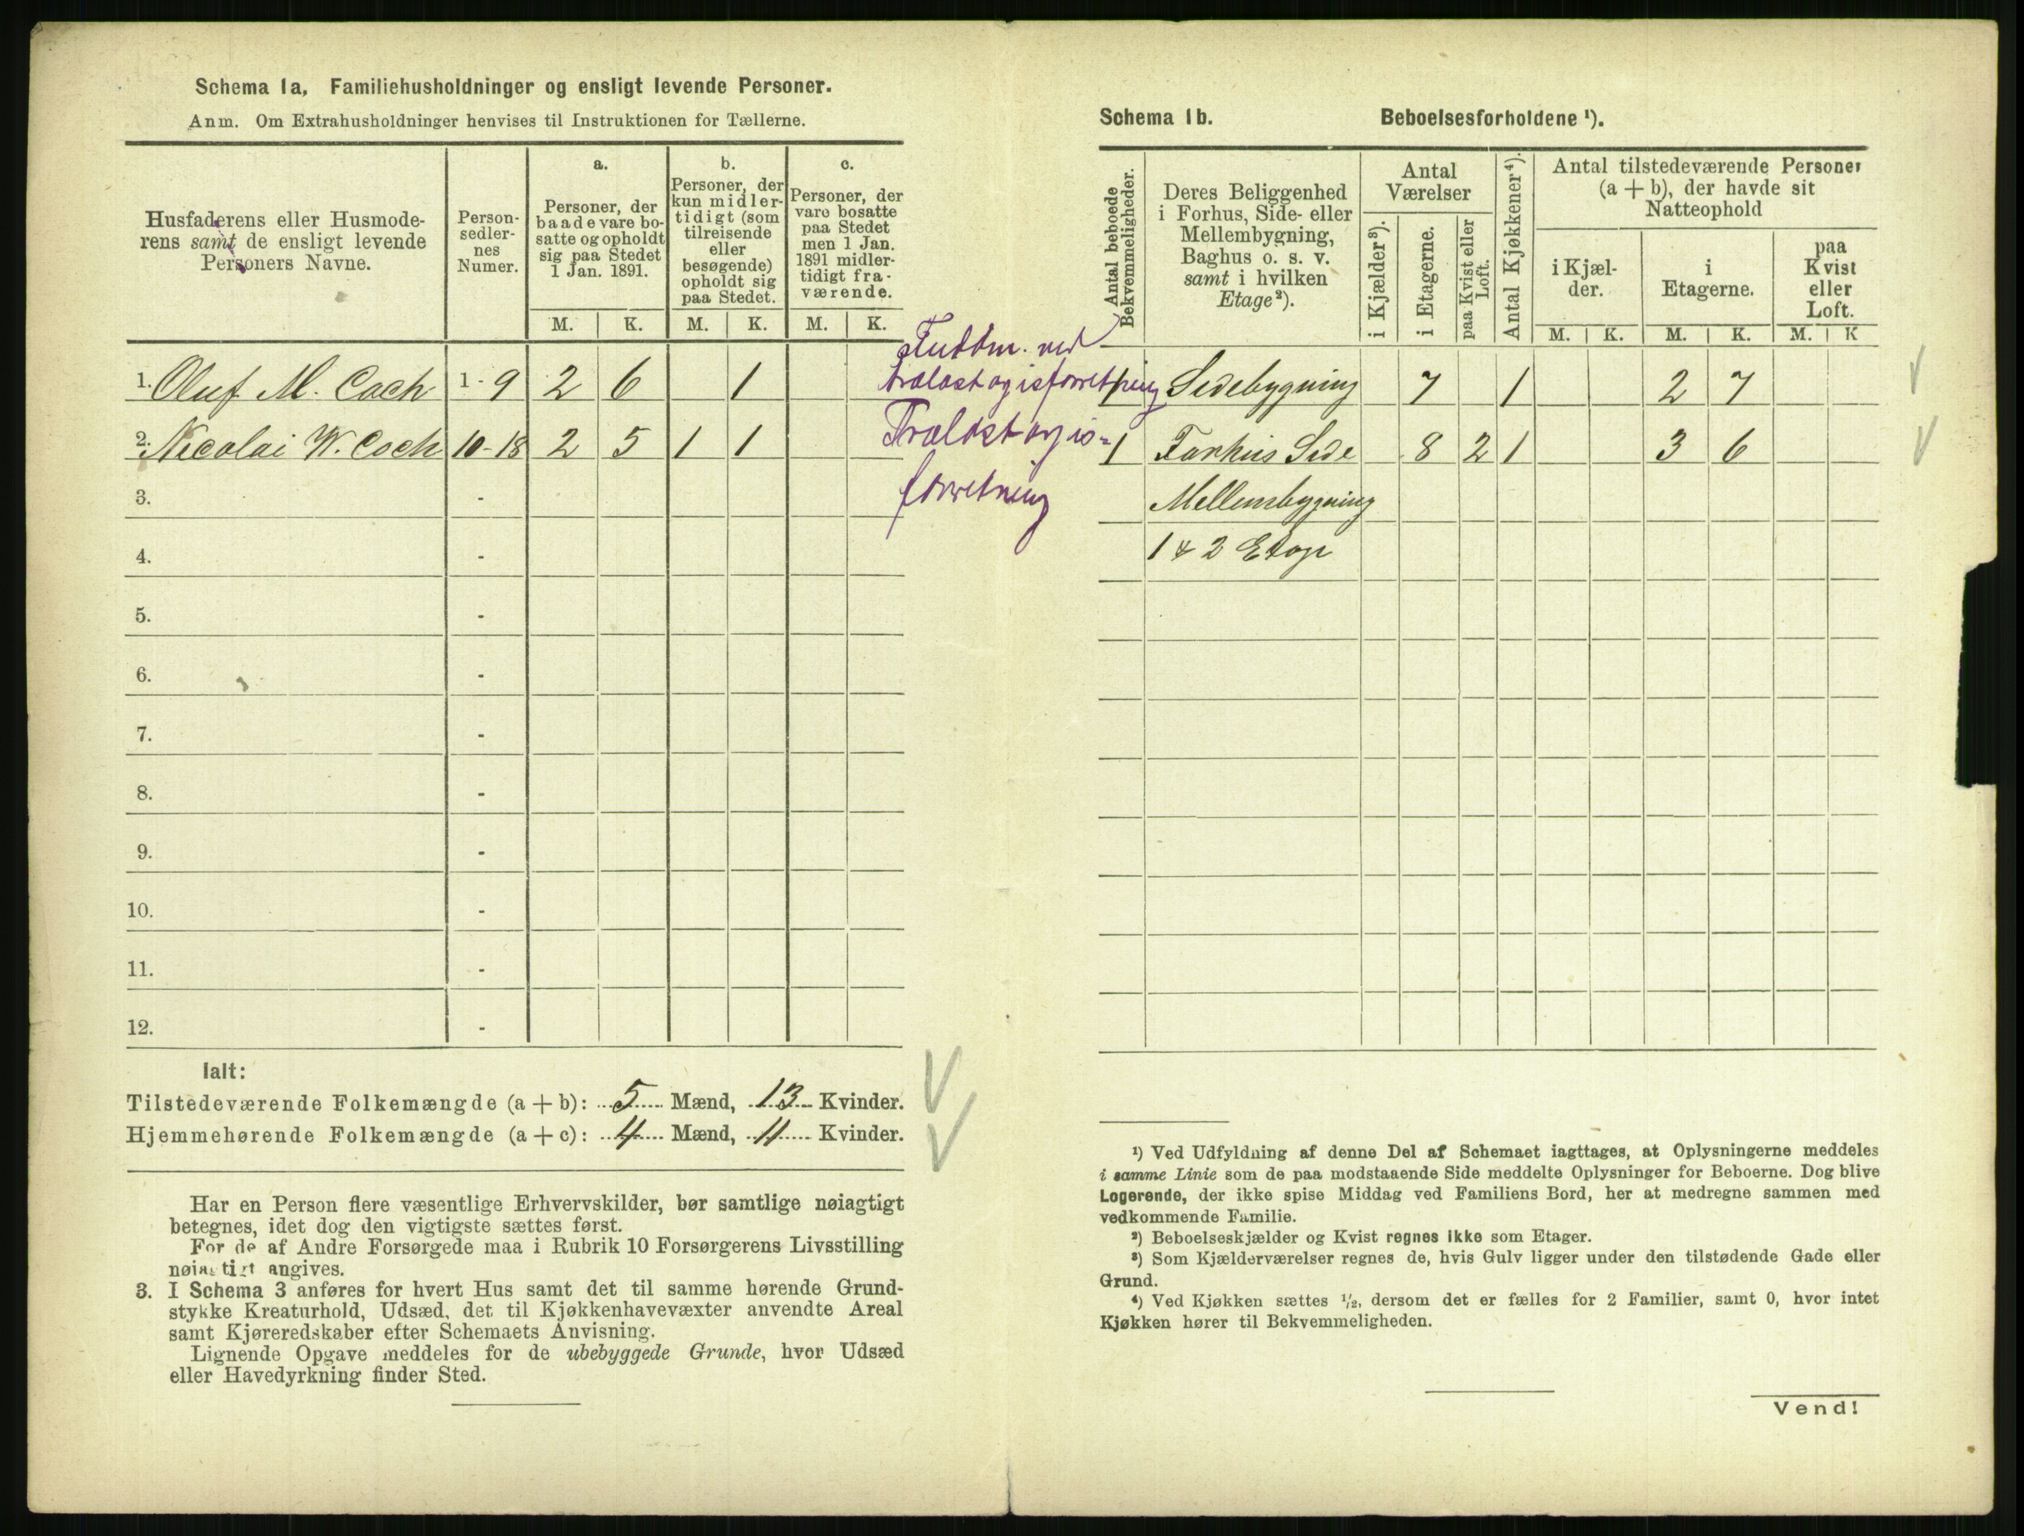 Schema 1a, Familiehusholdninger og ensligt levende Personer.
Anm. Om Extrahusholdninger henvises til Instruktionen for Tællerne.
Husfaderens eller Husmode-
rens samt de ensligt levende
Personers Navne.
Person-
sedler-
nes
Numer.
a.
Personer, der
baade vare bo-
satte og opholdt
sig paa Stedet
1 Jan. 1891.
b.
Personer, der
kun midler-
tidigt (som
tilreisende
eller
besøgende)
opholdt sig
paa Stedet.
c.
Personer, der
vare bosatte
paa Stedet
men 1 Jan.
1891 midler-
tidigt fra-
værende.
M. K. M. K. M. K.
1. Oluf M. Coch 1-9 2 6 1
2. Nicolai W. Coch 10-18 2 5 1 1
3. -
4. -
5. -
6. -
7. -
8. -
9. -
10. -
11. -
12. -
ved
trælast og isforretning
Trælast og is=
forretning
Ialt:
Tilstedeværende Folkemængde (a + b): 5 Mænd, 13 Kvinder.
Hjemmehørende Folkemængde (a + c): 4 Mænd, 11 Kvinder.
Har en Person flere væsentlige Erhvervskilder, bør samtlige nøiagtigt
betegnes, idet dog den vigtigste sættes først.
For de af Andre Forsørgede maa i Rubrik 10 Forsørgerens Livsstilling
nøiagtigt angives.
3. I Schema 3 anføres for hvert Hus samt det til samme hørende Grund-
stykke Kreaturhold, Udsæd, det til Kjøkkenhavevæxter anvendte Areal
samt Kjøreredskaber efter Schemaets Anvisning.
Lignende Opgave meddeles for de ubebyggede Grunde, hvor Udsæd
eller Havedyrkning finder Sted.
Schema 1b. Beboelsesforholdene ¹).
Antal beboede
Bekvemmeligheder.
Deres Beliggenhed
i Forhus, Side- eller
Mellembygning,
Baghus o. s. v.
samt i hvilken
Etage²).
Antal
Værelser
i Kjælder³).
i Etagerne.
paa Kvist eller
Loft.
Antal Kjøkkener⁴).
Antal tilstedeværende Personer
(a + b), der havde sit
Natteophold
i Kjæl-
der.
i
Etagerne.
paa
Kvist
eller
Loft.
M. K. M. K. M. K
1 Sidebygning 7 1 2 7
1 Forhus Side 8 2 1 3 6
Mellembygning
1 & 2 Etage
¹) Ved Udfyldning af denne Del af Schemaet iagttages, at Oplysningerne meddeles
i samme Linie som de paa modstaaende Side meddelte Oplysninger for Beboerne. Dog blive
Logerende, der ikke spise Middag ved Familiens Bord, her at medregne sammen med
vedkommende Familie.
²) Beboelseskjælder og Kvist regnes ikke som Etager.
³) Som Kjælderværelser regnes de, hvis Gulv ligger under den tilstødende Gade eller
Grund.
⁴) Ved Kjøkken sættes ½, dersom det er fælles for 2 Familier, samt 0, hvor intet
Kjøkken hører til Bekvemmeligheden.
Vend!